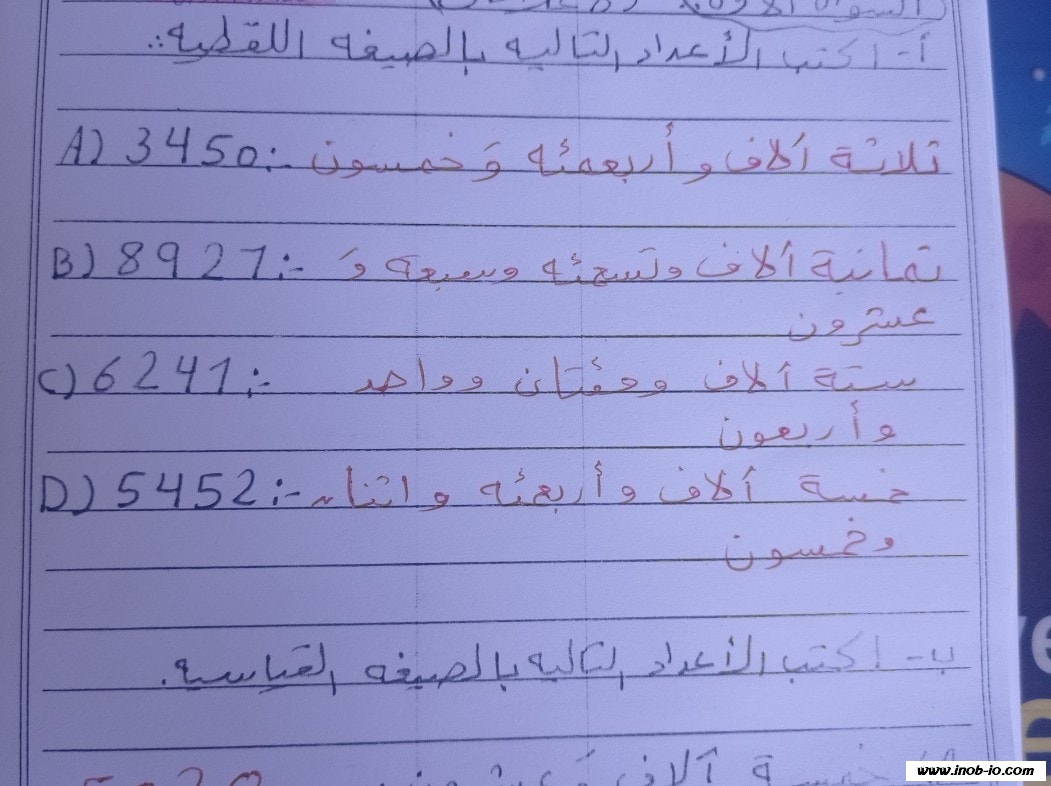 السؤال الأول
أ- اكتب الأعداد التاليه بالصيغه اللفظيه:.
A) 3450:- ثلاثة آلاف و أربعمئه وَ خمسون
B) 8927:- ثمانية آلاف وتسعمئه وسبعه وَ
عشرون
C) 6241:- ستة آلاف ومئتان وواحد
وأربعون
D) 5452:- خمسة آلاف وأربعمئه و اثنان
وخمسون
ب- اكتب الأعداد التاليه بالصيغه القياسيه.
خمسة آلاف وَ عشرون
www.inob-io.com